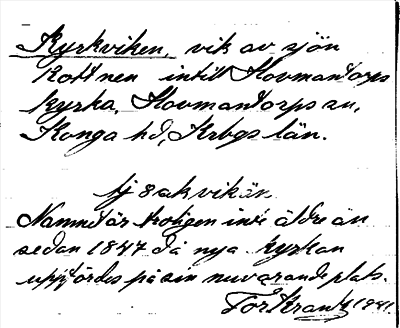 Kyrkviken, vik av sjön
Rottnen intill Hovmantorps
kyrka, Hovmantorps sn,
Konga hd, Krbgs län.
Namnet är troligen inte äldre än
sedan 1847 då nya kyrkan
uppfördes på sin nuvarande plats.
Tor 1941.